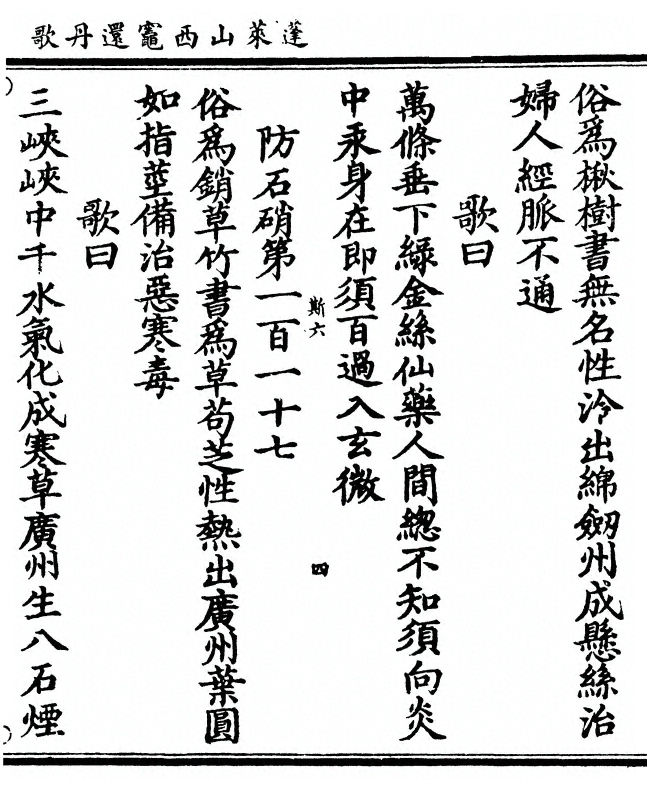 蓬萊山西竈還丹歌
俗爲楸樹書無名性冷出綿劒州成懸絲治
婦人經脈不通
歌曰
萬條垂下綠金絲仙藥人間總不知須向炎
中汞身在即須百過入玄微
斯六
四
防石硝第一百一十七
俗爲銷草竹書爲草芶芝性熱出廣州葉圓
如指莖備治惡寒毒
歌曰
三峽峽中千水氣化成寒草廣州生八石煙